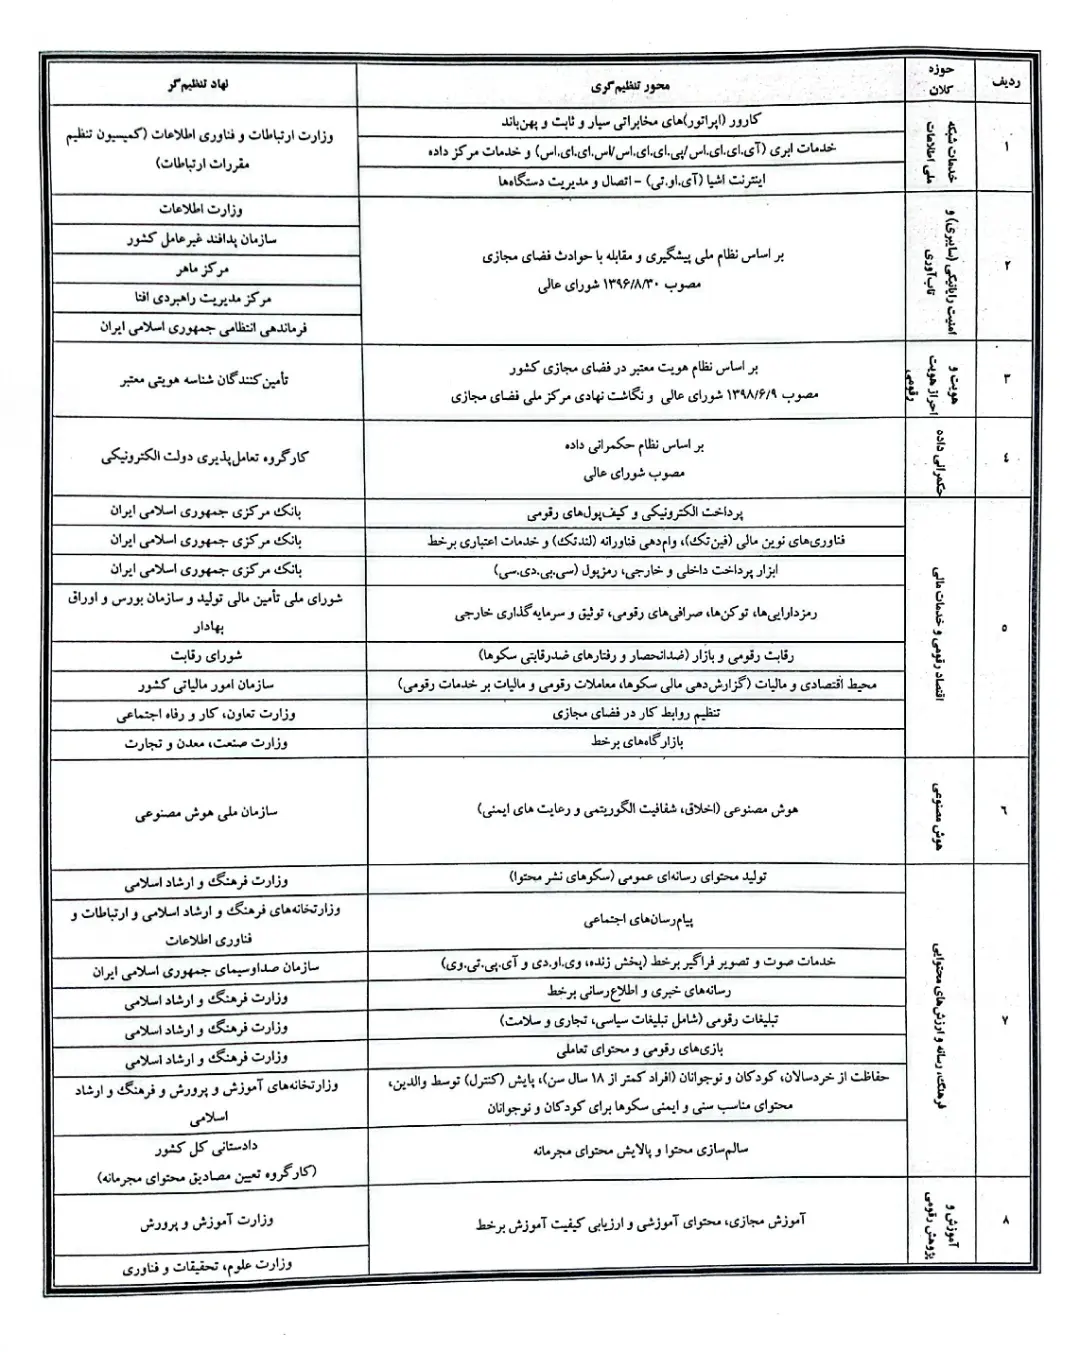 ردیف
حوزه
کلان
محور تنظیم‌گری
نهاد تنظیم‌گر
۱
خدمات شبکه
ملی اطلاعات
کارور (اپراتور)های مخابراتی سیار و ثابت و پهن‌باند
خدمات ابری (آی.ای.ای.اس/پی.ای.ای.اس/اس.ای.ای.اس) و خدمات مرکز داده
اینترنت اشیا (آی.او.تی) – اتصال و مدیریت دستگاه‌ها
وزارت ارتباطات و فناوری اطلاعات (کمیسیون تنظیم
مقررات ارتباطات)
۲
امنیت رایانیکی (سایبری) و
تاب‌آوری
بر اساس نظام ملی پیشگیری و مقابله با حوادث فضای مجازی
مصوب ۱۳۹۶/۸/۳۰ شورای عالی
وزارت اطلاعات
سازمان پدافند غیرعامل کشور
مرکز ماهر
مرکز مدیریت راهبردی افتا
فرماندهی انتظامی جمهوری اسلامی ایران
۳
هویت و
احراز هویت
رقومی
بر اساس نظام هویت معتبر در فضای مجازی کشور
مصوب ۱۳۹۸/۶/۹ شورای عالی و نگاشت نهادی مرکز ملی فضای مجازی
تأمین‌کنندگان شناسه هویتی معتبر
۴
حکمرانی داده
بر اساس نظام حکمرانی داده
مصوب شورای عالی
کارگروه تعامل‌پذیری دولت الکترونیکی
۵
اقتصاد رقومی و خدمات مالی
پرداخت الکترونیکی و کیف‌پول‌های رقومی
بانک مرکزی جمهوری اسلامی ایران
فناوری‌های نوین مالی (فین‌تک)، وام‌دهی فناورانه (لندتک) و خدمات اعتباری برخط
بانک مرکزی جمهوری اسلامی ایران
ابزار پرداخت داخلی و خارجی، رمزپول (سی.بی.دی.سی)
بانک مرکزی جمهوری اسلامی ایران
رمزدارایی‌ها، توکن‌ها، صرافی‌های رقومی، توثیق و سرمایه‌گذاری خارجی
شورای ملی تأمین مالی تولید و سازمان بورس و اوراق
بهادار
رقابت رقومی و بازار (ضدانحصار و رفتارهای ضدرقابتی سکوها)
شورای رقابت
محیط اقتصادی و مالیات (گزارش‌دهی مالی سکوها، معاملات رقومی و مالیات بر خدمات رقومی)
سازمان امور مالیاتی کشور
تنظیم روابط کار در فضای مجازی
وزارت تعاون، کار و رفاه اجتماعی
بازارگاه‌های برخط
وزارت صنعت، معدن و تجارت
۶
هوش مصنوعی
هوش مصنوعی (اخلاق، شفافیت الگوریتمی و رعایت های ایمنی)
سازمان ملی هوش مصنوعی
۷
فرهنگ، رسانه و ارزش‌های محتوایی
تولید محتوای رسانه‌ای عمومی (سکوهای نشر محتوا)
وزارت فرهنگ و ارشاد اسلامی
پیام‌رسان‌های اجتماعی
وزارتخانه‌های فرهنگ و ارشاد اسلامی و ارتباطات و
فناوری اطلاعات
خدمات صوت و تصویر فراگیر برخط (پخش زنده، وی.او.دی و آی.پی.تی.وی)
سازمان صداوسیمای جمهوری اسلامی ایران
رسانه‌های خبری و اطلاع‌رسانی برخط
وزارت فرهنگ و ارشاد اسلامی
تبلیغات رقومی (شامل تبلیغات سیاسی، تجاری و سلامت)
وزارت فرهنگ و ارشاد اسلامی
بازی‌های رقومی و محتوای تعاملی
وزارت فرهنگ و ارشاد اسلامی
حفاظت از خردسالان، کودکان و نوجوانان (افراد کمتر از ۱۸ سال سن)، پایش (کنترل) توسط والدین،
محتوای مناسب سنی و ایمنی سکوها برای کودکان و نوجوانان
وزارتخانه‌های آموزش و پرورش و فرهنگ و ارشاد
اسلامی
سالم‌سازی محتوا و پالایش محتوای مجرمانه
دادستانی کل کشور
(کارگروه تعیین مصادیق محتوای مجرمانه)
۸
آموزش و
پژوهش رقومی
آموزش مجازی، محتوای آموزشی و ارزیابی کیفیت آموزش برخط
وزارت آموزش و پرورش
وزارت علوم، تحقیقات و فناوری